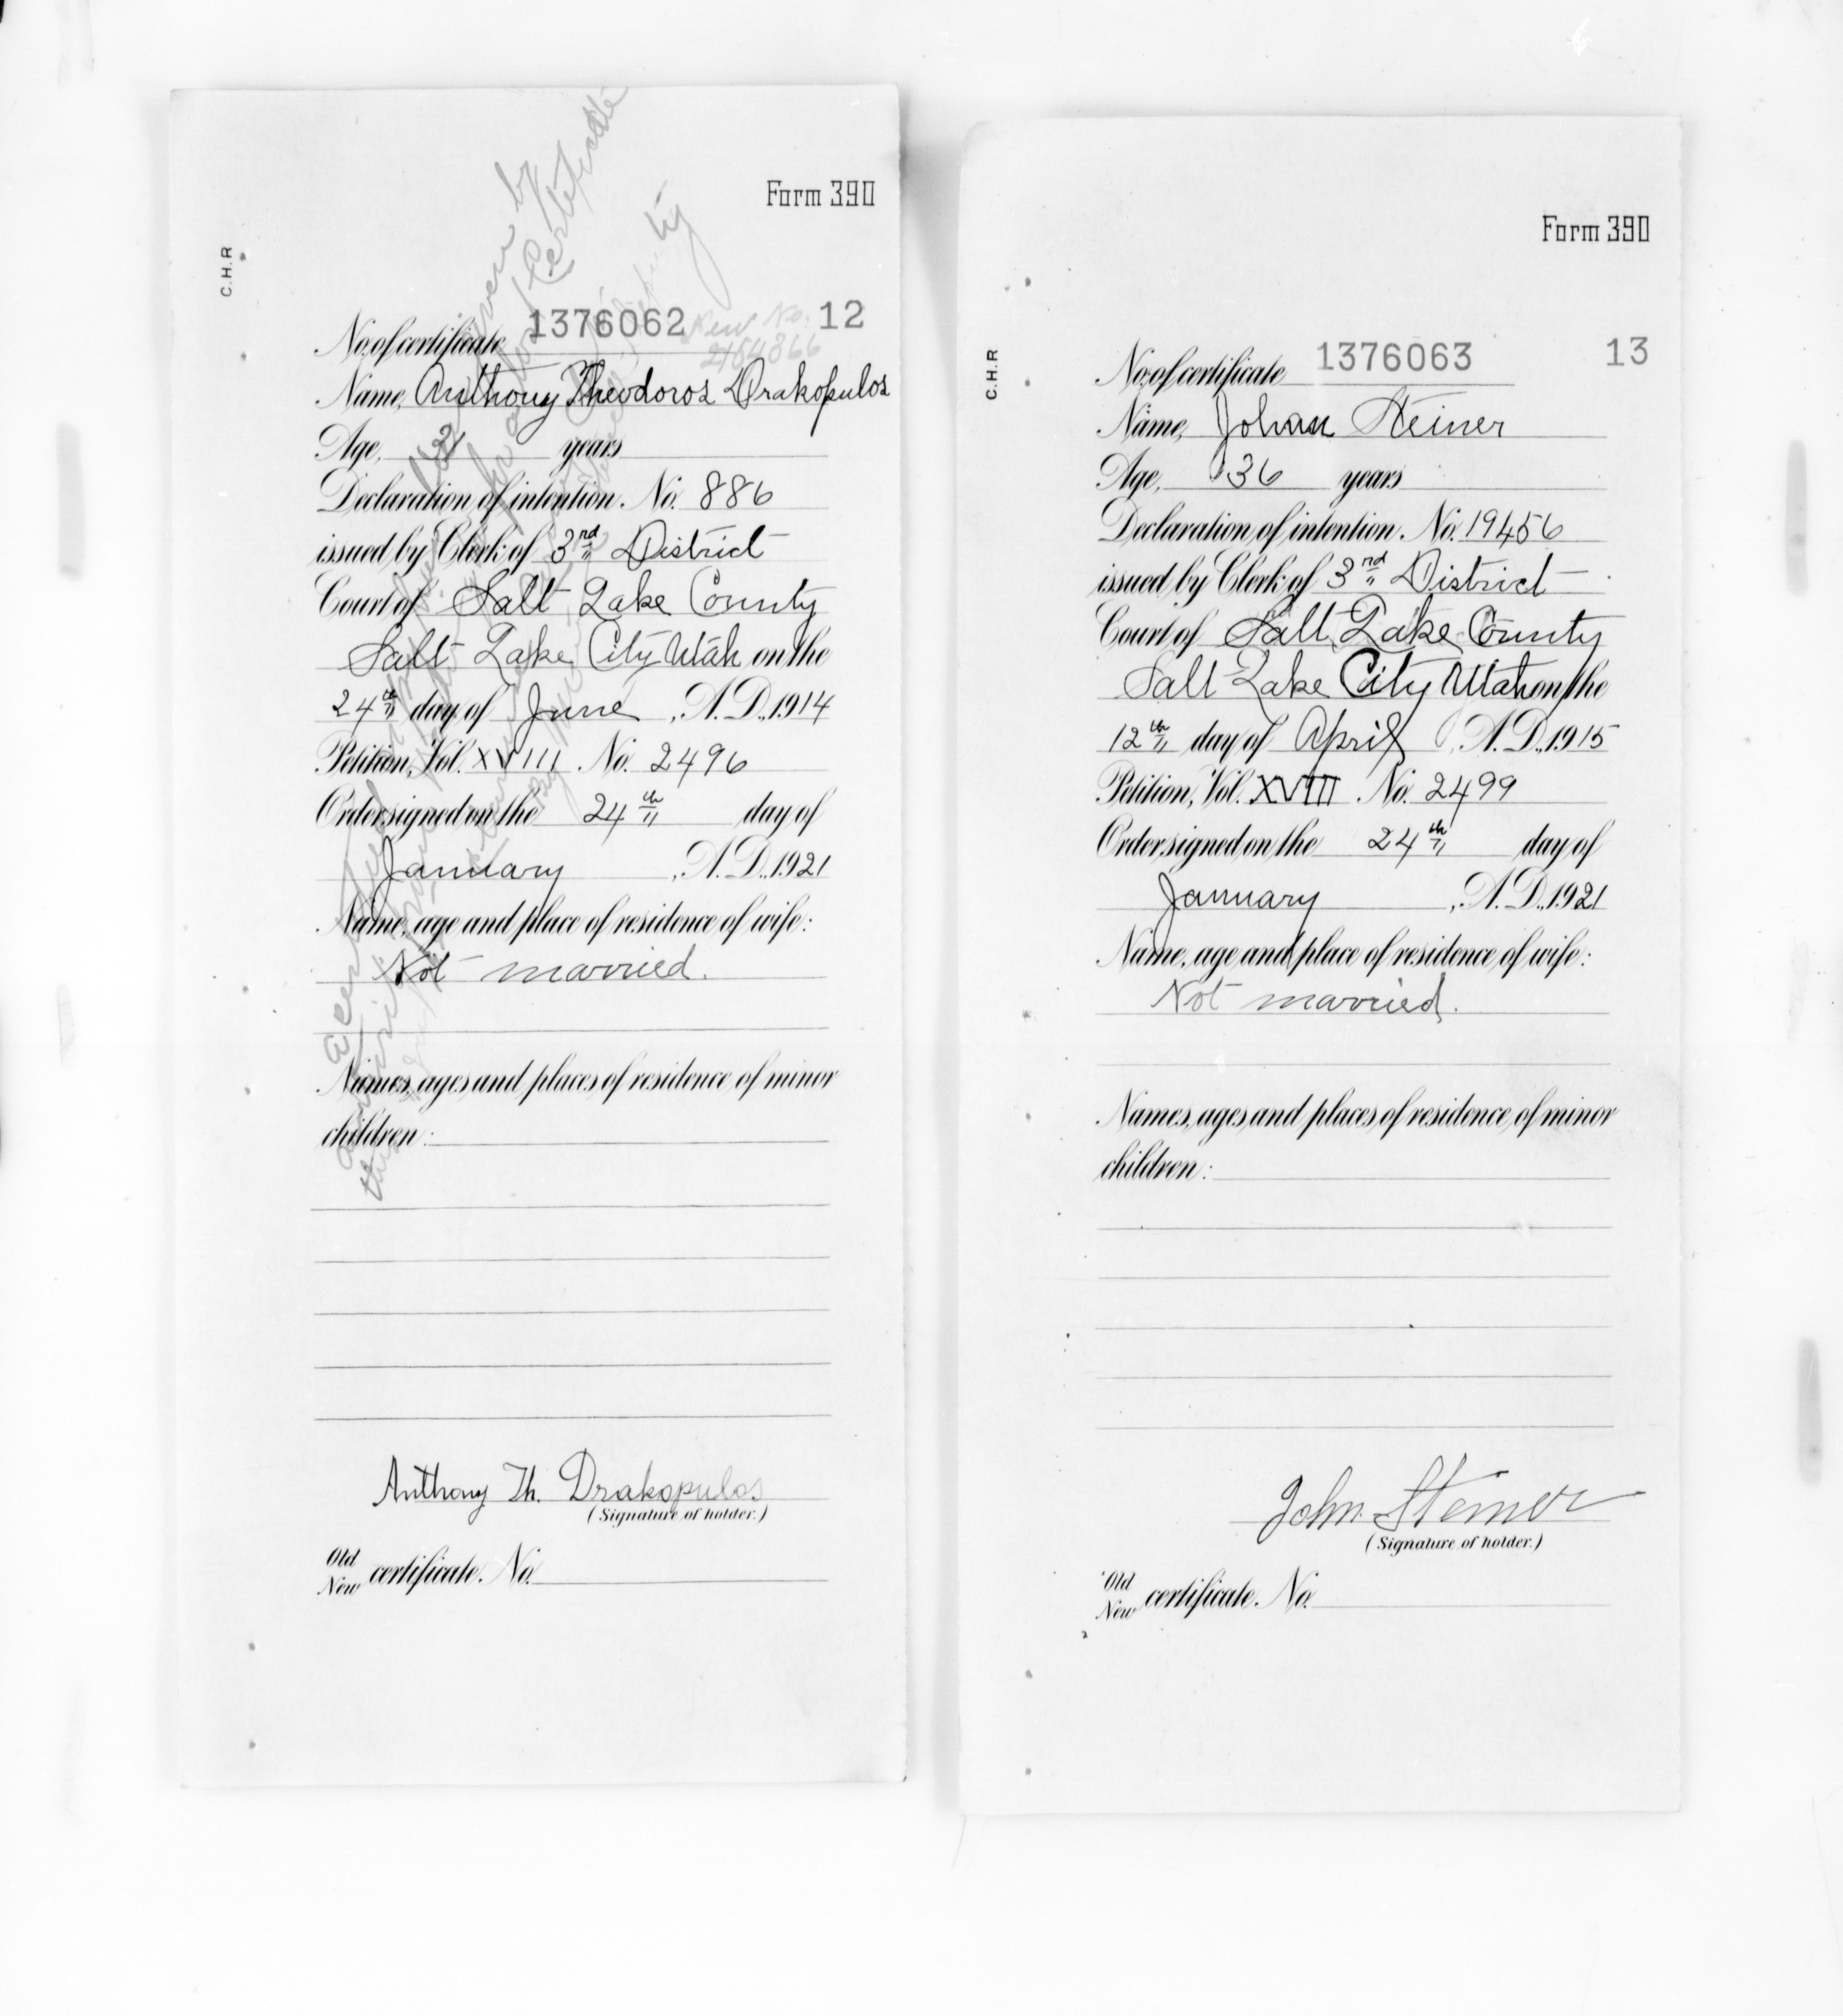 Form 390
C.H.R
No. of certificate 1376062 12
New No.
Name, Anthony Theodoros Drakopulos
Age, 31 years
Declaration of intention, No. 886
issued by Clerk of 3rd District
Court of Salt Lake County
Salt Lake City Utah on the
24th day of June, A.D., 1914
Petition, Vol. XVIII No. 2496
Order signed on the 24th day of
January, A.D., 1921
Name, age and place of residence of wife:
Not married.
Names, ages and places of residence of minor
children:
Anthony Th. Drakopulos
(Signature of holder.)
Old
New certificate, No.
Form 390
C.H.R
No. of certificate 1376063 13
Name, Johan Steiner
Age, 36 years
Declaration of intention, No. 19456
issued by Clerk of 3rd District
Court of Salt Lake County
Salt Lake City Utah on the
12th day of April, A.D., 1915
Petition, Vol. XVIII No. 2499
Order signed on the 24th day of
January, A.D., 1921
Name, age and place of residence of wife:
Not married.
Names, ages and places of residence of minor
children:
John Steiner
(Signature of holder.)
Old
New certificate, No.